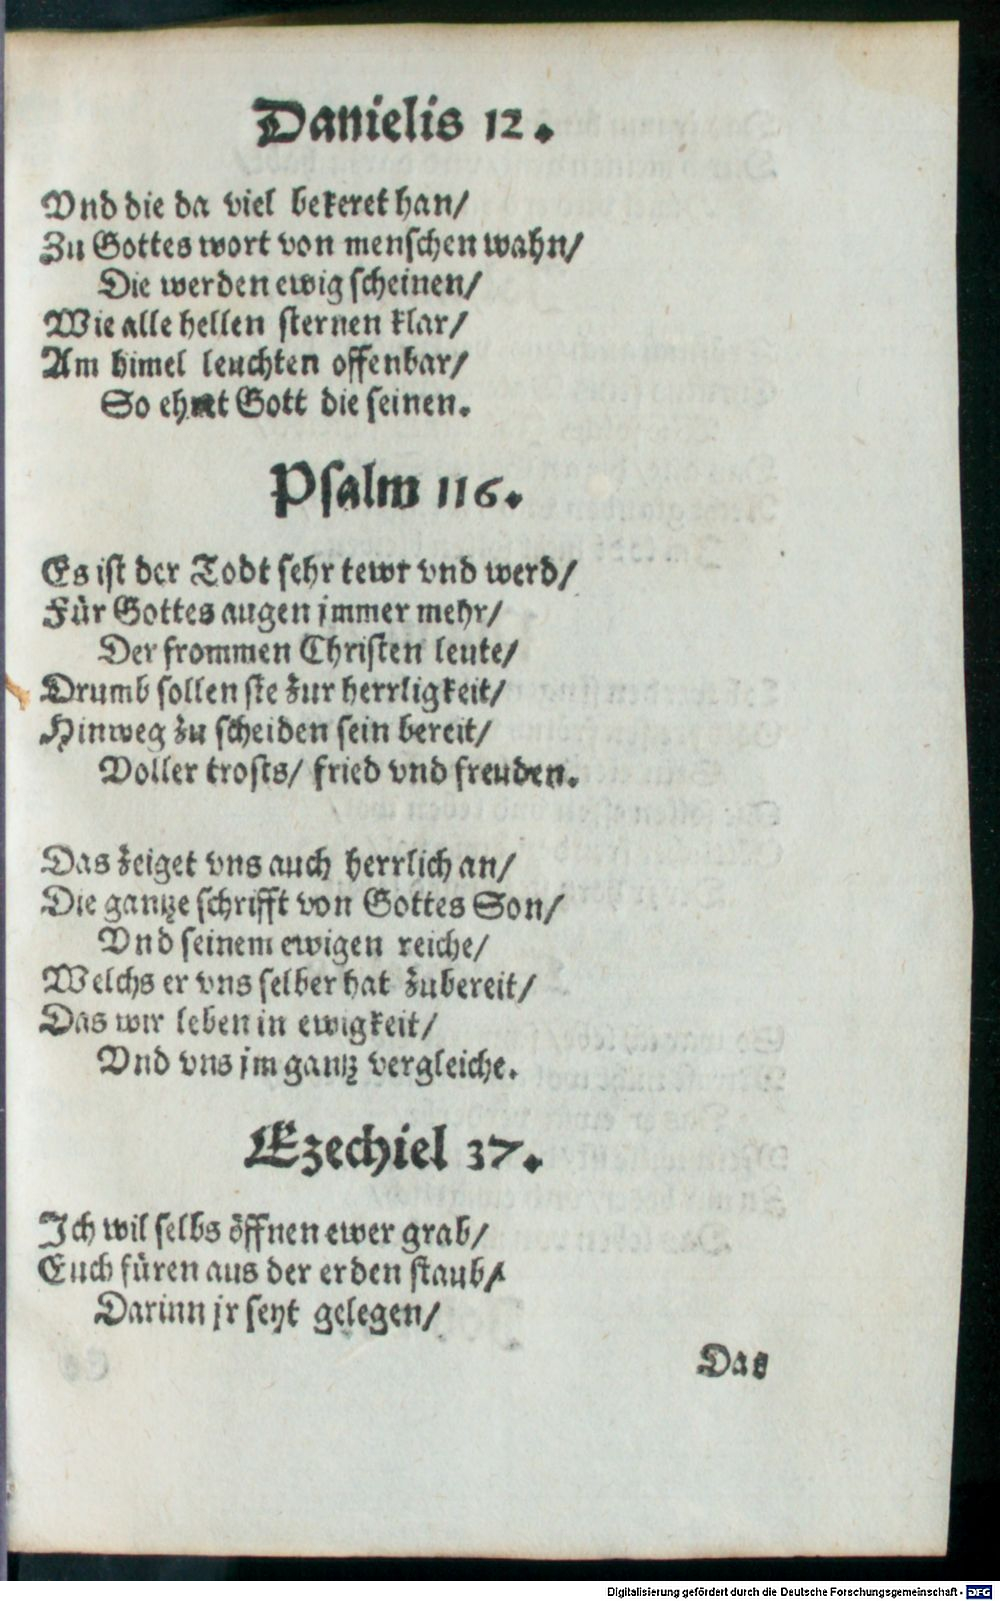 Danielis 12.
Vnd die da viel bekeret han/
Zu Gottes wort von menschen wahn/
Die werden ewig scheinen/
Wie alle hellen sternen klar/
Am himel leuchten offenbar/
So ehret Gott die seinen.
Psalm 116.
Es ist der Todt sehr tewr vnd werd/
Für Gottes augen jmmer mehr/
Der frommen Christen leute/
Drumb sollen sie zur herrligkeit/
Hinweg zu scheiden sein bereit/
Voller trosts/ fried vnd freuden.
Das zeiget vns auch herrlich an/
Die gantze schrifft von Gottes Son/
Vnd seinem ewigen reiche/
Welchs er vns selber hat zubereit/
Das wir leben in ewigkeit/
Vnd vns jm gantz vergleiche.
Ezechiel 37.
Ich wil selbs öffnen ewer grab/
Euch füren aus der erden staub/
Darinn jr seyt gelegen/
Das
Digitalisierung gefördert durch die Deutsche Forschungsgemeinschaft - DFG